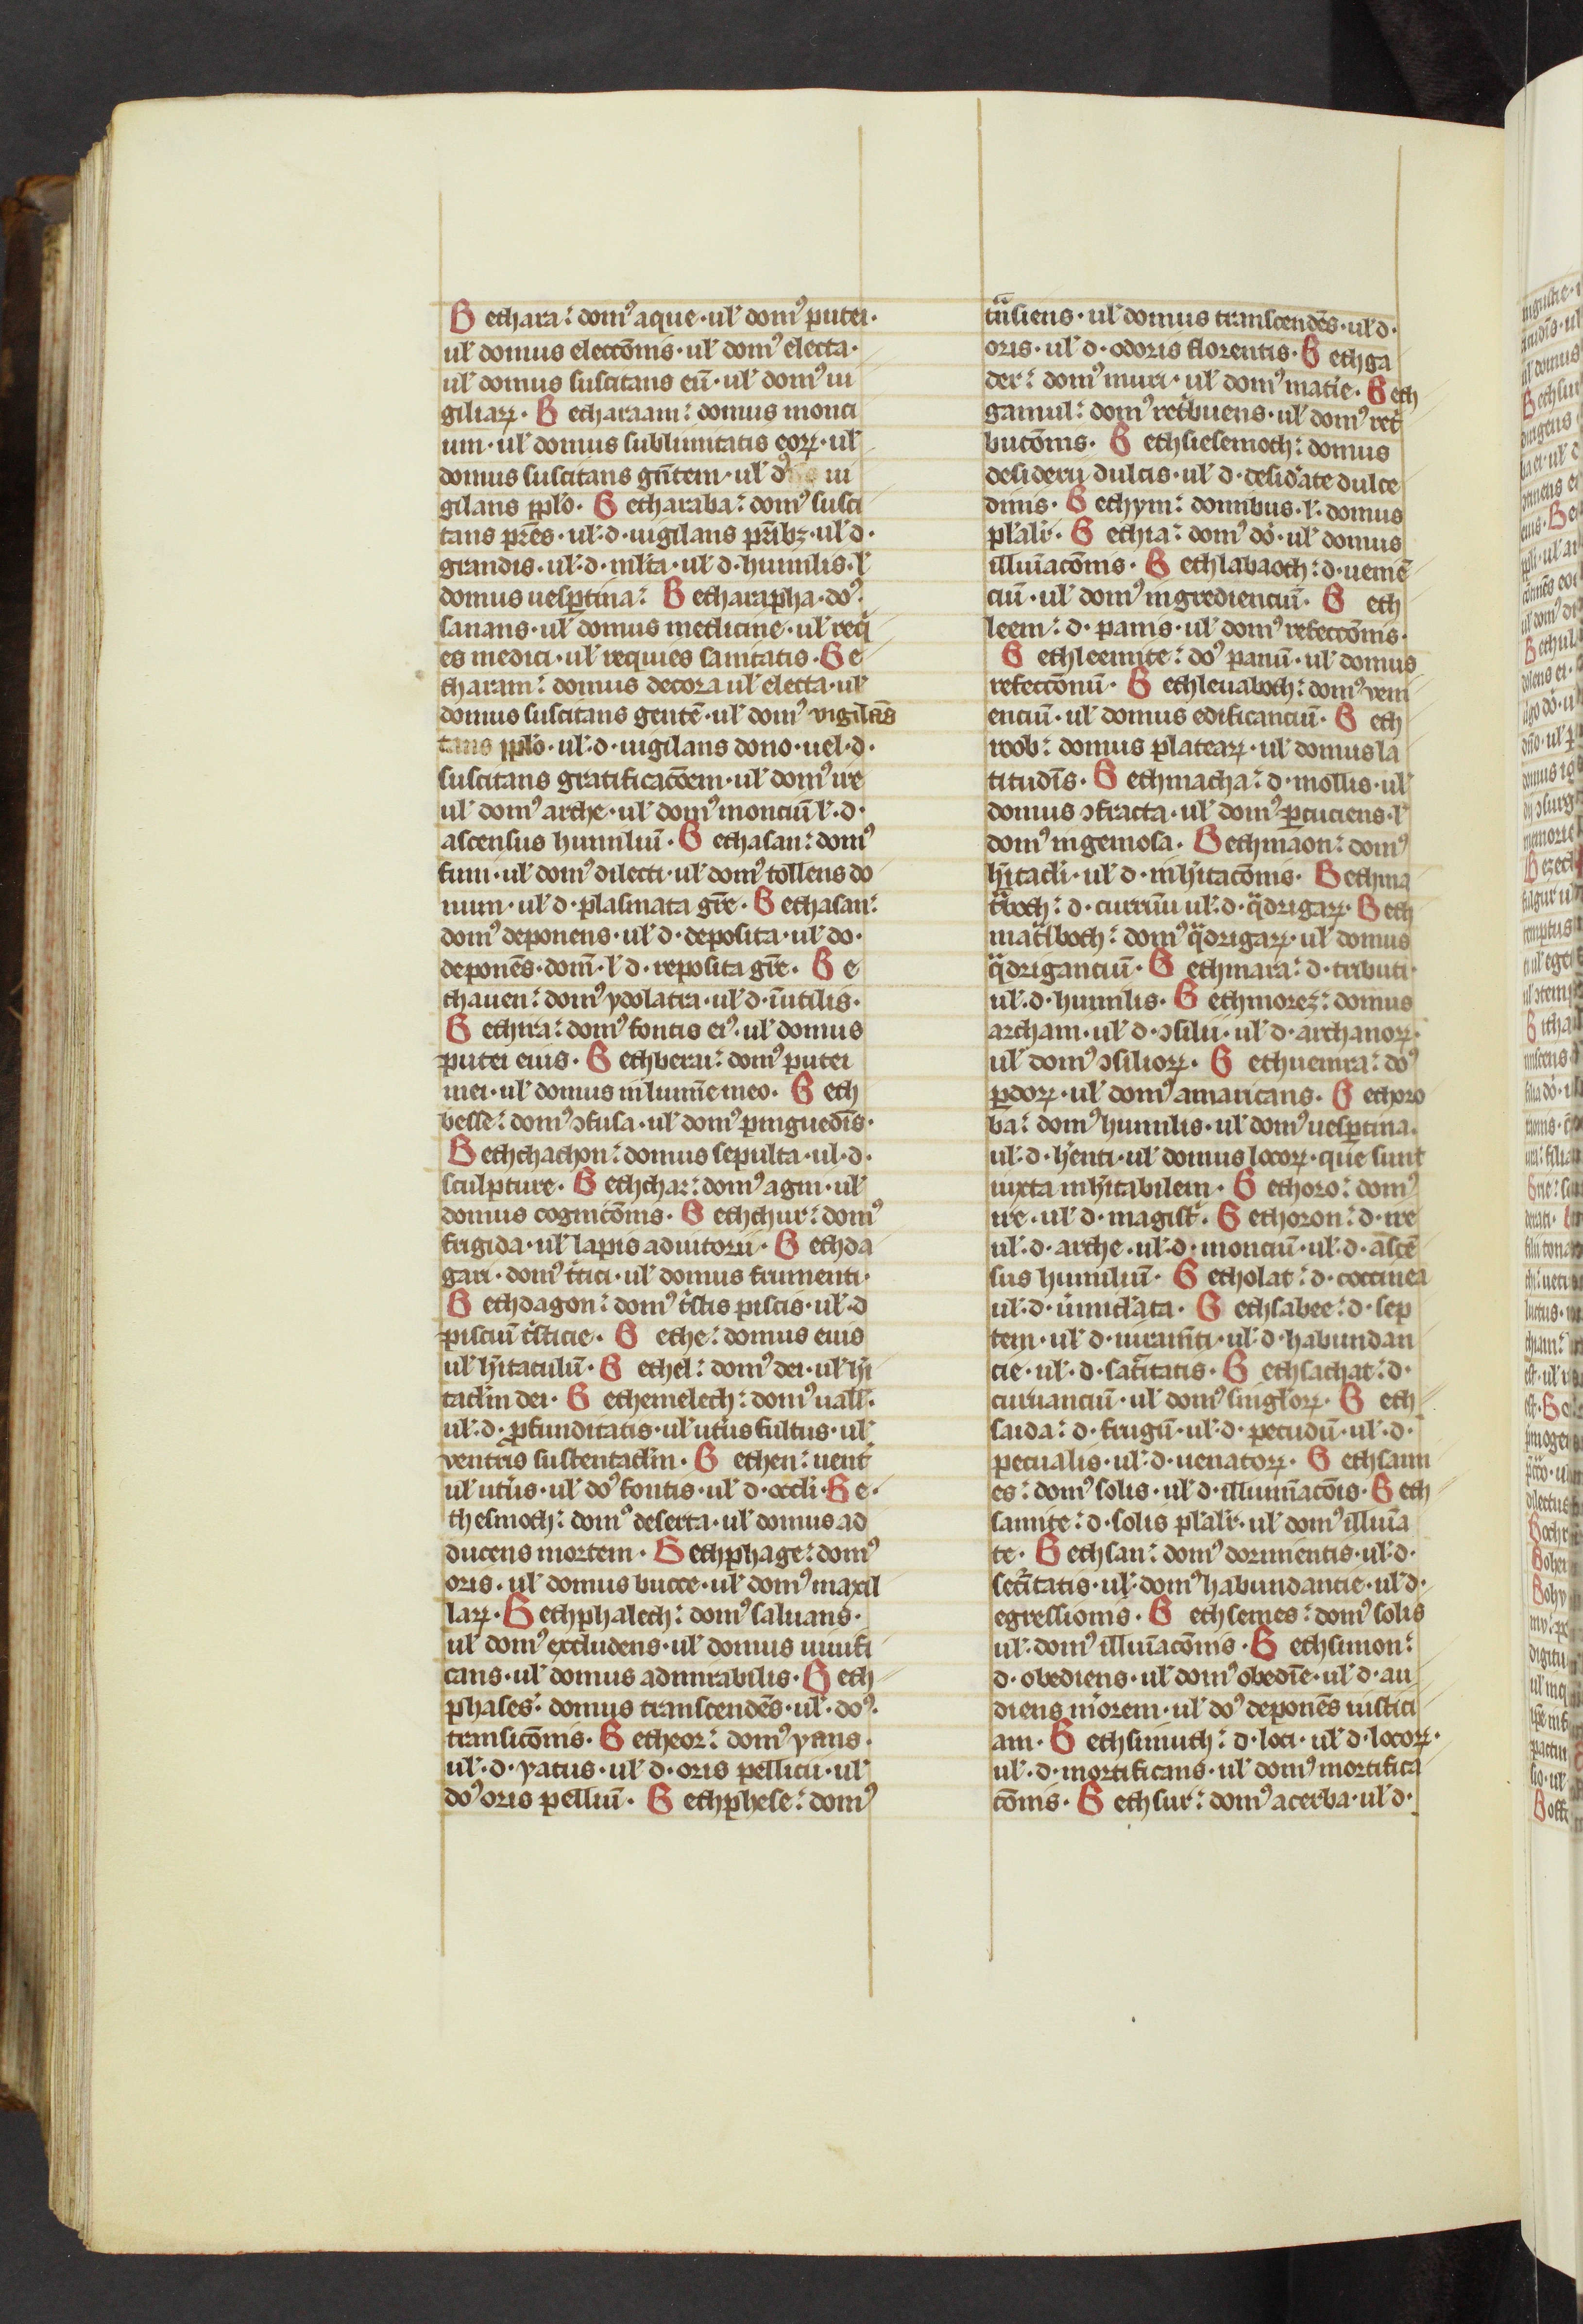 Bethara: domꝰ aque · ul̛ domꝰ putei ·
ul̛ domus eleccōnis · ul̛ domꝰ electa ·
ul̛ domus suscitans eū · ul̛ domꝰ ui
giliaꝝ · Betharaam: domus monti
um · ul̛ domus sublimitatis eoꝝ · ul̛
domus suscitans gn̄tem · ul̛ dꝰ ui
gilans pp̄lo · Betharaba: domꝰ susci
tans pr̄es · ul̛ · d · uigilans pr̄ibꝫ · ul̛ d ·
grandis · ul̛ · d · ml̛ta · ul̛ d · humilis · l̛
domus uesꝑtina: Betharapha · doꝰ ·
sanans · ul̛ domus medicine · ul̛ req̄
es medici · ul̛ requies sanitatis · Be
tharam: domus decora ul̛ electa · ul̛
domus suscitans gentē · ul̛ domꝰ vigilās
tans pp̄lo · ul̛ · d · uigilans dono · uel · d ·
suscitans gratificacōem · ul̛ domꝰ ire
ul̛ domꝰ arche · ul̛ domꝰ monciū l̛ · d ·
ascensus humiliū · Bethasan: domꝰ
fumi · ul̛ domꝰ dilecti · ul̛ domꝰ tollens do
num · ul̛ d · plasmata gr̄e · Bethasan:
domꝰ deponens · ul̛ d · deposita · ul̛ do ·
deponēs · dom̄ · l̛ d · reposita gr̄e · Be
thauen: domꝰ ydolatra · ul̛ d · īutilis ·
Bethira: domꝰ fontis eiꝰ · ul̛ domus
putei eius · Bethberai: domꝰ putei
mei · ul̛ domus in lumīe meo · Beth
besse: domꝰ ↄfusa · ul̛ domꝰ pinguedīs ·
Bethchachon: domus sepulta · ul · d ·
sculpture · Bethchar: domꝰ agni · ul̛
domus cognicōnis · Bethchur: domꝰ
frigida · ul̛ lapis adiutorii · Bethda
gari · domꝰ t̛tici · ul̛ domus frumenti ·
Bethdagon: domꝰ t̛stis piscis · ul̛ · d
pisciū t̛sticie · Bethe: domus eius
ul̛ hītaculū · Bethel: domꝰ dei · ul̛ hī
tacl̛m dei · Bethemelech: domꝰ uall̛ ·
ul̛ · d · ꝓfunditatis · ul̛ ut̛us fultus · ul̛
ventris sustentacl̛m · Bethen: uent̛
ul̛ ut̛us · ul̛ doꝰ fontis · ul̛ d · occl̛i · Be ·
thesmoth: domꝰ deserta · ul̛ domus ad
ducens mortem · Bethphage: domꝰ
oris · ul̛ domus bucce · ul̛ domꝰ maxil
laꝝ · Bethphalech: domꝰ saluans ·
ul̛ domꝰ excludens · ul̛ domus uiuifi
cans · ul̛ domus admirabilis · Beth
phases: domus transcendēs · ul̛ · doꝰ ·
transicōnis · Betheor: domꝰ yans ·
ul̛ · d · yatus · ul̛ d · oris pellicii · ul̛
doꝰ oris pelliū · Bethphese: domꝰ
tn̄siens · ul̛ domus transcendēs · ul̛ d ·
oris · ul̛ d · odoris florentis · Bethga
der: domꝰ muri · ul̛ domꝰ matie · Beth
gamul: domꝰ ret̛buens · ul̛ domꝰ ret̛
bucōnis · Bethsiesemoth: domus
desiderij dulcis · ul̛ d · desid̛ate dulce
dinis · Bethym: domibus · l̛ · domus
pl̛alir̛ · Bethia: domꝰ dō · ul̛ domus
illuīacōnis · Bethlabaoth: d · ueniē
ciū · ul̛ domꝰ ingrediencium · Beth
leem: d · panis · ul̛ domꝰ refeccōnis ·
Bethleemite: doꝰ panū · ul̛ domus
refeccōnū · Bethleuaboth: domꝰ veni
enciū · ul̛ domus edificanciū · Beth
roob: domus plateaꝝ · ul̛ domus la
titudīs · Bethmacha: d · mollis · ul̛
domus ↄfracta · ul̛ domꝰ ꝑcuciens · l̛
domꝰ ingeniosa · Bethmaon: domꝰ
hītacl̛i · ul̛ d · inhītacōnis · Bethma
t̄both: d · curruū ul̛ · d · q̄drigaꝝ · Beth
mat̄lboth: domꝰ q̄drigaꝝ · ul̛ domus
q̄driganciū · Bethmara: d · tributi ·
ul̛ · d · humilis · Bethmorez: domus
archam · ul̛ d · ↄsilii · ul̛ d · archanoꝝ ·
ul̛ domꝰ ↄsilioꝝ · Bethuemra: doꝰ
ꝑdoꝝ · ul̛ domꝰ amaricans · Bethoro
ba: domꝰ humilis · ul̛ domꝰ uesꝑtina ·
ul̛ · d · h̛enti · ul̛ domus locoꝝ · que sunt
iuxta inhītabilem · Bethoro: domꝰ
ire · ul̛ d · magist̛ · Bethoron: d · ire
ul̛ · d · arche · ul̛ · d · monciū · ul̛ · d · ascē
sus humiliū · Betholat: d · coccinea
ul̛ · d · ưmicl̛ata · Bethsabee: d · sep
tem · ul̛ d · iuramn̄ti · ul̛ · d · habundan
cie · ul̛ · d · sat̛itatis · Bethsachat: d ·
curuanciū · ul̛ domꝰ singl̛oꝝ · Beth
saida: d · frugū · ul̛ · d · pecudū · ul̛ · d ·
pecualis · ul̛ · d · uenatoꝝ · Bethsam
es: domꝰ solis · ul̛ d · illumīacōis · Beth
samite: d · solis pl̛alir̛ · ul̛ domꝰ illuīa
te · Bethsan: domꝰ dormientis · ul̛ · d ·
sec̛itatis · ul̛ · domꝰ habundancie · ul̛ d ·
egressionis · Bethsemes: domꝰ solis
ul̛ · domꝰ illuīacōnis · Bethsimon:
d · obediens · ul̛ domꝰ obedīe · ul̛ d · au
diens m̄orem · ul̛ doꝰ deponēs iustici
am · Bethsimuth: d · loci · ul̛ d · locoꝝ ·
ul̛ · d · mortificans · ul̛ domꝰ mortifica
cōnis · Bethsur: domꝰ acerba · ul̛ d ·